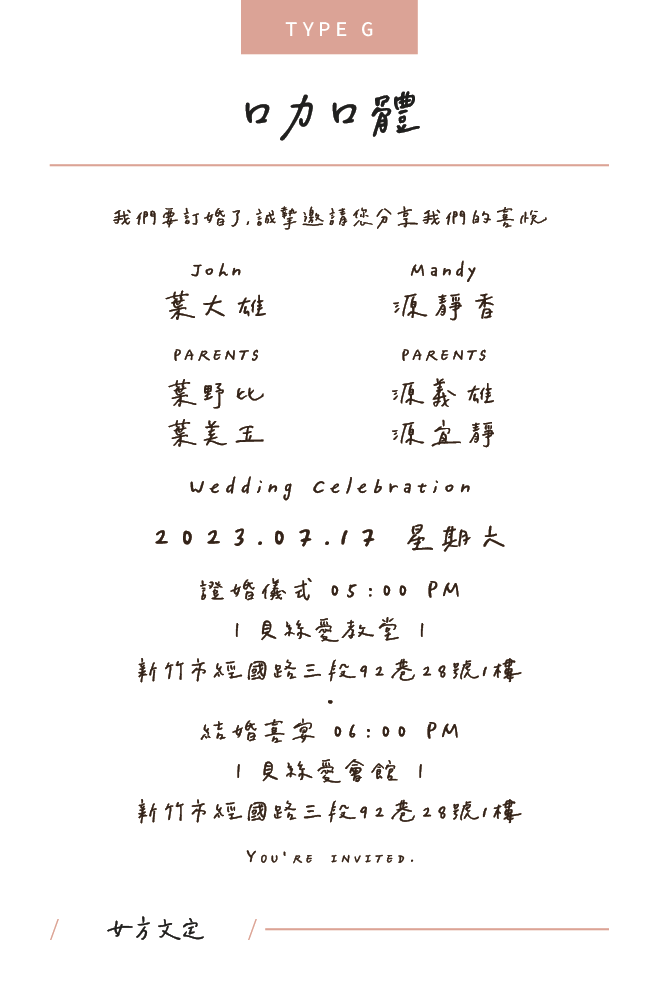 TYPE G
口力口體
我們要訂婚了,誠摯邀請您分享我們的喜悅
John Mandy
葉大雄 源靜香
PARENTS PARENTS
葉野比 源義雄
葉美玉 源宜靜
Wedding Celebration
2023.07.17 星期六
證婚儀式 05:00 PM
| 貝絲愛教堂 |
新竹市經國路三段92巷28號1樓
•
結婚喜宴 06:00 PM
| 貝絲愛會館 |
新竹市經國路三段92巷28號1樓
YOU'RE INVITED.
/ 女方文定 /